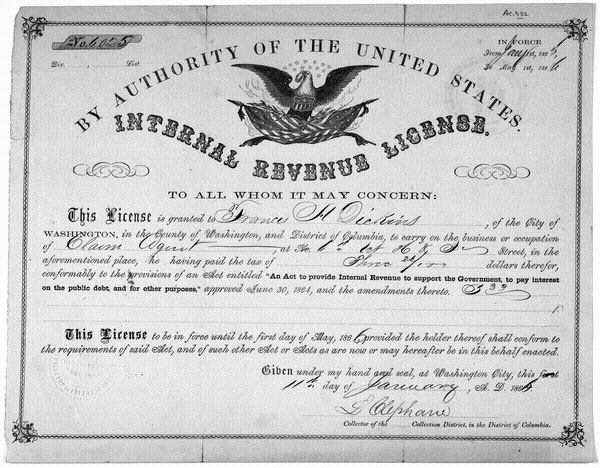 Ac. 932
No. 6025
IN FORCE
Div. List.
From Jany 1st, 186
To May 1st, 1866.
BY AUTHORITY OF THE UNITED STATES.
INTERNAL REVENUE LICENSE.
TO ALL WHOM IT MAY CONCERN:
This License is granted to Francis H Dickins, of the City of
WASHINGTON, in the County of Washington, and District of Columbia, to carry on the business or occupation
of Claim Agent, at No. Street, in the
aforementioned place, he having paid the tax of Three dollars therefor,
conformably to the provisions of an Act entitled "An Act to provide Internal Revenue to support the Government, to pay interest
on the public debt, and for other purposes," approved June 30, 1864, and the amendments thereto.
This License to be in force until the first day of May, 1866 provided the holder thereof shall conform to
the requirements of said Act, and of such other Act or Acts as are now or may hereafter be in this behalf enacted.
Given under my hand and seal, at Washington City, this first
11th day of January, A. D. 186
L Clephane
Collector of the Collection District, in the District of Columbia.